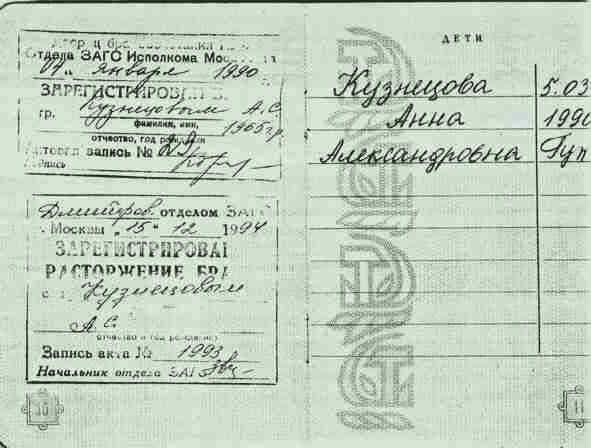 Отдела ЗАГС Исполкома
января 1990
ЗАРЕГИСТРИРОВАН
гр. Кузнецовым А.С.
фамилия, имя,
1965 г.р.
отчество, год рождения
запись №
подпись
Дмитров. отделом ЗАГС
Москвы "15" 12 1994
ЗАРЕГИСТРИРОВА
РАСТОРЖЕНИЕ БРА
с гр. Кузнецовым
А.С.
отчество и год рождения
Запись акта № 1993
Начальник отдела ЗАГС
10
ДЕТИ
Кузнецова 5.03
Анна 1990
Александровна Гуп
11